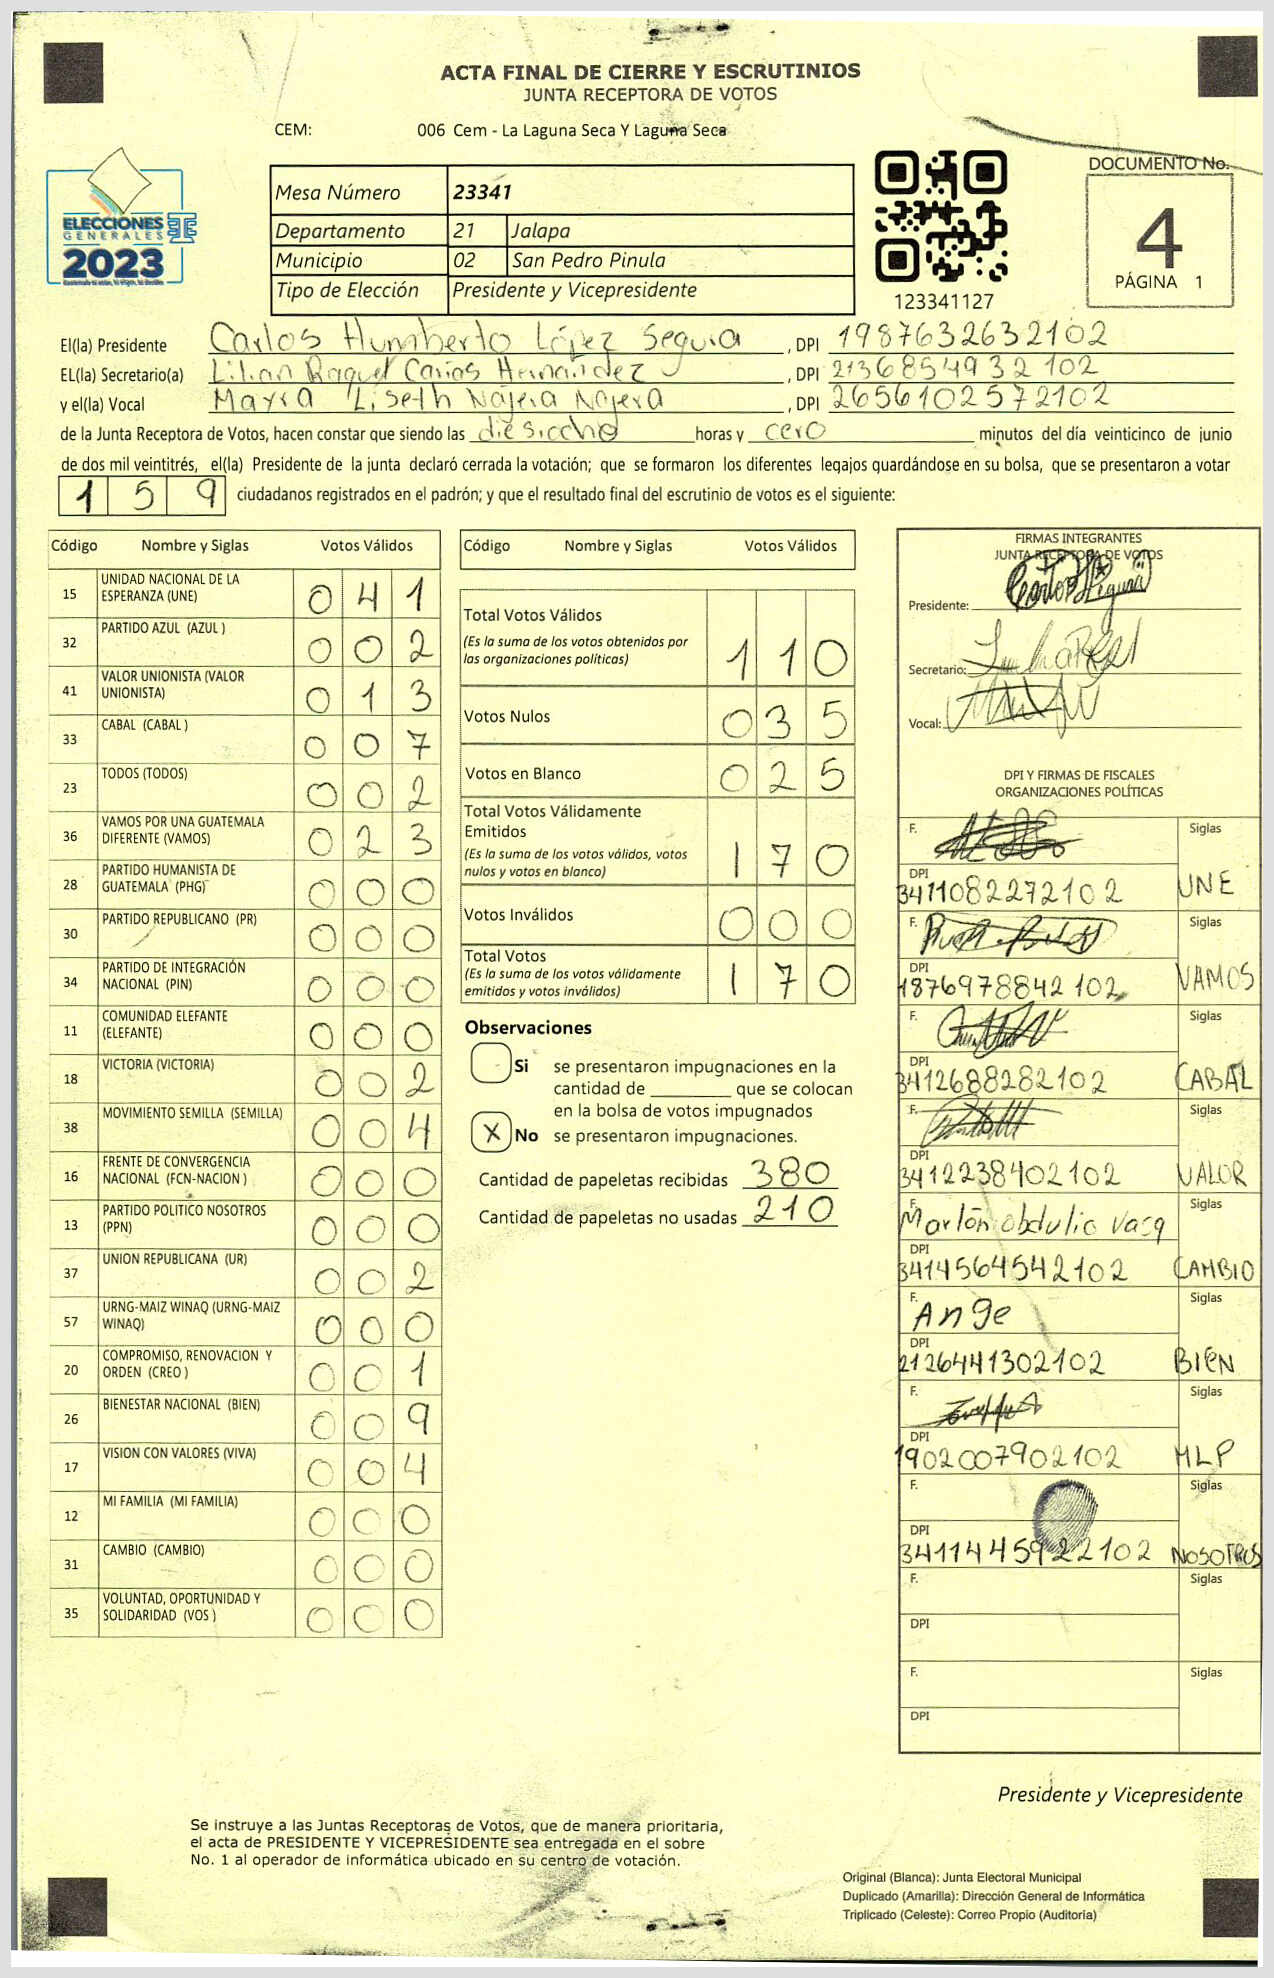 ACTA FINAL DE CIERRE Y ESCRUTINIOS
JUNTA RECEPTORA DE VOTOS
CEM: 006 Cem - La Laguna Seca Y Laguna Seca
ELECCIONES
GENERALES
2023
Mesa Número 23341
Departamento 21 Jalapa
Municipio 02 San Pedro Pinula
Tipo de Elección Presidente y Vicepresidente
123341127
DOCUMENTO No.
4
PÁGINA 1
El(la) Presidente Carlos Humberto López Segura , DPI 1987632632102
EL(la) Secretario(a) Lilian Raquel Carias Hernandez , DPI 2136854932102
y el(la) Vocal Mayra Liseth Nájera Najera , DPI 2656102572102
de la Junta Receptora de Votos, hacen constar que siendo las diesiocho horas y cero minutos del día veinticinco de junio
de dos mil veintitrés, el(la) Presidente de la junta declaró cerrada la votación; que se formaron los diferentes legajos guardándose en su bolsa, que se presentaron a votar
1 5 9 ciudadanos registrados en el padrón; y que el resultado final del escrutinio de votos es el siguiente:
Código Nombre y Siglas Votos Válidos
15 UNIDAD NACIONAL DE LA ESPERANZA (UNE) 0 4 1
32 PARTIDO AZUL (AZUL ) 0 0 2
41 VALOR UNIONISTA (VALOR UNIONISTA) 0 1 3
33 CABAL (CABAL ) 0 0 7
23 TODOS (TODOS) 0 0 2
36 VAMOS POR UNA GUATEMALA DIFERENTE (VAMOS) 0 2 3
28 PARTIDO HUMANISTA DE GUATEMALA (PHG) 0 0 0
30 PARTIDO REPUBLICANO (PR) 0 0 0
34 PARTIDO DE INTEGRACIÓN NACIONAL (PIN) 0 0 0
11 COMUNIDAD ELEFANTE (ELEFANTE) 0 0 0
18 VICTORIA (VICTORIA) 0 0 2
38 MOVIMIENTO SEMILLA (SEMILLA) 0 0 4
16 FRENTE DE CONVERGENCIA NACIONAL (FCN-NACION ) 0 0 0
13 PARTIDO POLITICO NOSOTROS (PPN) 0 0 0
37 UNION REPUBLICANA (UR) 0 0 2
57 URNG-MAIZ WINAQ (URNG-MAIZ WINAQ) 0 0 0
20 COMPROMISO, RENOVACION Y ORDEN (CREO ) 0 0 1
26 BIENESTAR NACIONAL (BIEN) 0 0 9
17 VISION CON VALORES (VIVA) 0 0 4
12 MI FAMILIA (MI FAMILIA) 0 0 0
31 CAMBIO (CAMBIO) 0 0 0
35 VOLUNTAD, OPORTUNIDAD Y SOLIDARIDAD (VOS ) 0 0 0
Código Nombre y Siglas Votos Válidos
Total Votos Válidos
(Es la suma de los votos obtenidos por las organizaciones políticas) 1 1 0
Votos Nulos 0 3 5
Votos en Blanco 0 2 5
Total Votos Válidamente Emitidos
(Es la suma de los votos válidos, votos nulos y votos en blanco) 1 7 0
Votos Inválidos 0 0 0
Total Votos
(Es la suma de los votos válidamente emitidos y votos inválidos) 1 7 0
Observaciones
Si se presentaron impugnaciones en la
cantidad de ________ que se colocan
en la bolsa de votos impugnados
X No se presentaron impugnaciones.
Cantidad de papeletas recibidas 380
Cantidad de papeletas no usadas 210
FIRMAS INTEGRANTES
JUNTA RECEPTORA DE VOTOS
Presidente:
Secretario:
Vocal:
DPI Y FIRMAS DE FISCALES
ORGANIZACIONES POLÍTICAS
F. Siglas
DPI 3411082272102 UNE
F. Siglas
DPI 1876978842102 VAMOS
F. Siglas
DPI 3412688282102 CABAL
F. Siglas
DPI 3412238402102 VALOR
F. Marlon obdulio Vasq Siglas
DPI 3414564542102 CAMBIO
F. Ange Siglas
DPI 2126441302102 BIEN
F. Siglas
DPI 1902007902102 MLP
F. Siglas
DPI 3411445922102 NOSOTROS
F. Siglas
DPI
F. Siglas
DPI
Presidente y Vicepresidente
Se instruye a las Juntas Receptoras de Votos, que de manera prioritaria,
el acta de PRESIDENTE Y VICEPRESIDENTE sea entregada en el sobre
No. 1 al operador de informática ubicado en su centro de votación.
Original (Blanca): Junta Electoral Municipal
Duplicado (Amarilla): Dirección General de Informática
Triplicado (Celeste): Correo Propio (Auditoría)